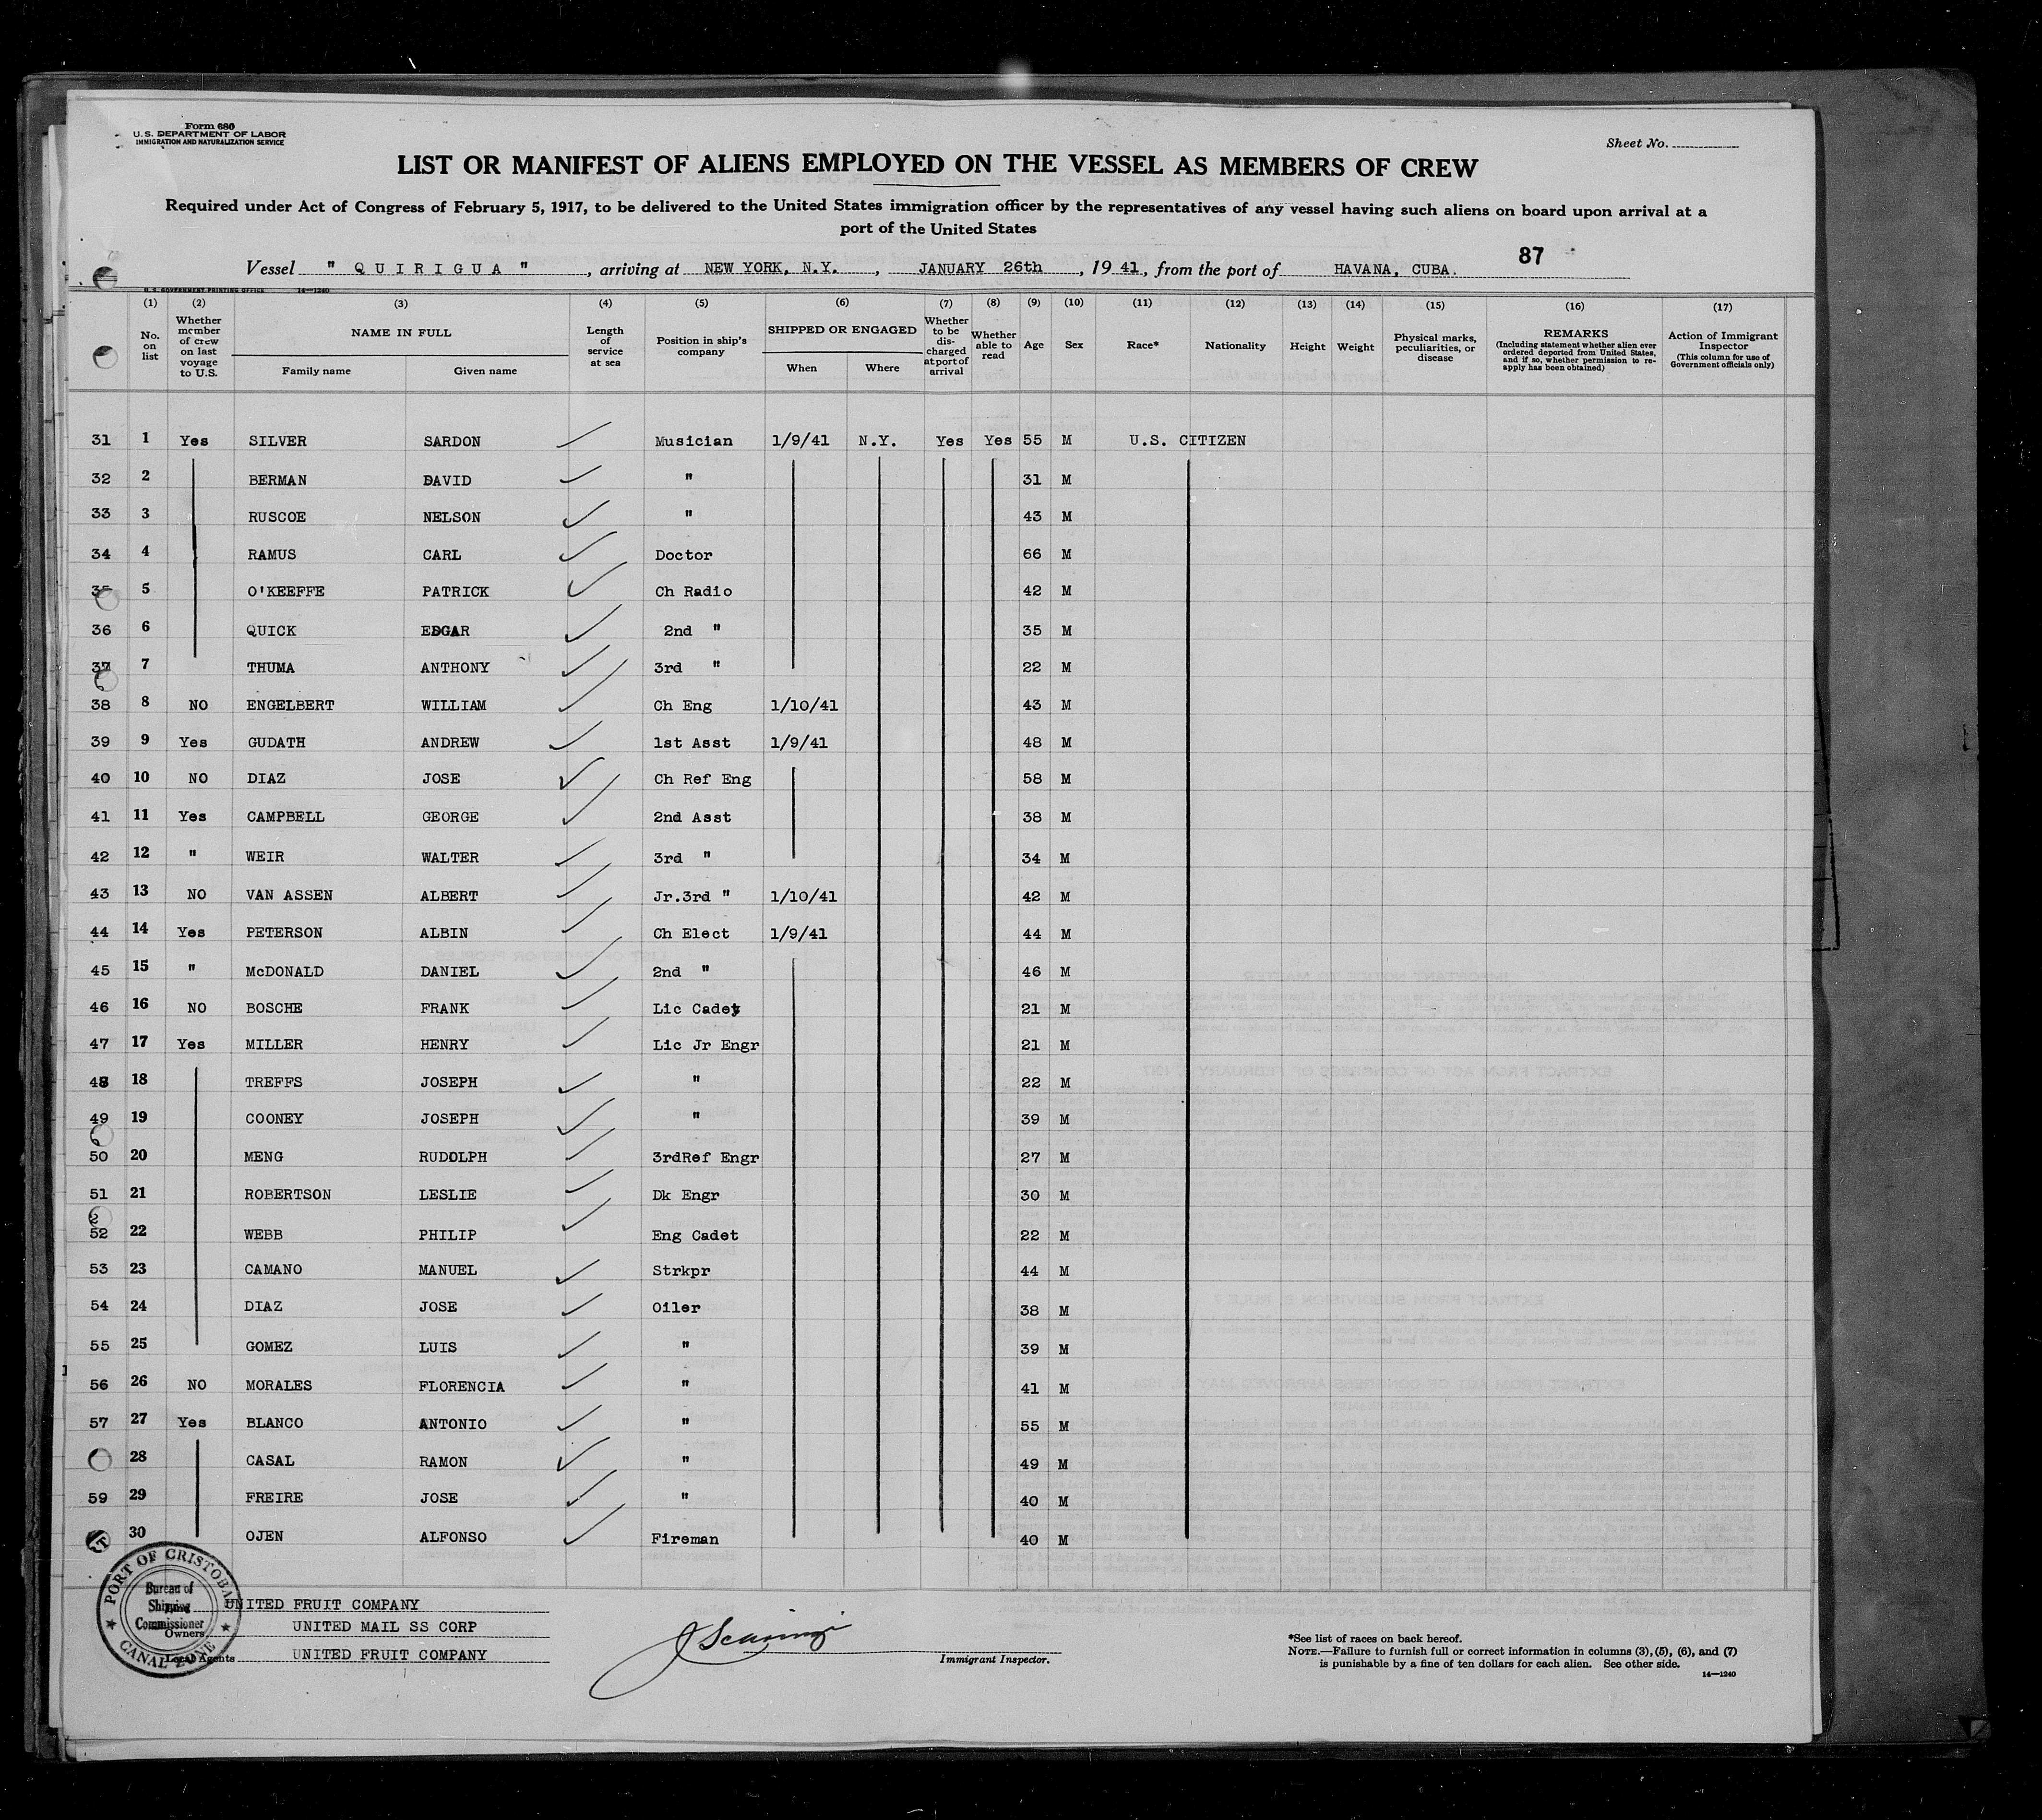 Form 680
U.S. DEPARTMENT OF LABOR
IMMIGRATION AND NATURALIZATION SERVICE
Sheet No.
LIST OR MANIFEST OF ALIENS EMPLOYED ON THE VESSEL AS MEMBERS OF CREW
Required under Act of Congress of February 5, 1917, to be delivered to the United States immigration officer by the representatives of any vessel having such aliens on board upon arrival at a
port of the United States
87
Vessel " QUIRIGUA " , arriving at NEW YORK, N.Y. , JANUARY 26th , 19 41, from the port of HAVANA, CUBA.
U.S. GOVERNMENT PRINTING OFFICE 14—1240
(1) (2) (3) (4) (5) (6) (7) (8) (9) (10) (11) (12) (13) (14) (15) (16) (17)
No. on list
Whether member of crew on last voyage to U.S.
NAME IN FULL
Family name Given name
Length of service at sea
Position in ship's company
SHIPPED OR ENGAGED
When Where
Whether to be discharged at port of arrival
Whether able to read
Age
Sex
Race*
Nationality
Height
Weight
Physical marks, peculiarities, or disease
REMARKS
(Including statement whether alien ever ordered deported from United States, and if so, whether permission to re-apply has been obtained)
Action of Immigrant Inspector
(This column for use of Government officials only)
31 1 Yes SILVER SARDON Musician 1/9/41 N.Y. Yes Yes 55 M U.S. CITIZEN
32 2 BERMAN DAVID " 31 M
33 3 RUSCOE NELSON " 43 M
34 4 RAMUS CARL Doctor 66 M
35 5 O'KEEFFE PATRICK Ch Radio 42 M
36 6 QUICK EDGAR 2nd " 35 M
37 7 THUMA ANTHONY 3rd " 22 M
38 8 NO ENGELBERT WILLIAM Ch Eng 1/10/41 43 M
39 9 Yes GUDATH ANDREW 1st Asst 1/9/41 48 M
40 10 NO DIAZ JOSE Ch Ref Eng 58 M
41 11 Yes CAMPBELL GEORGE 2nd Asst 38 M
42 12 " WEIR WALTER 3rd " 34 M
43 13 NO VAN ASSEN ALBERT Jr.3rd " 1/10/41 42 M
44 14 Yes PETERSON ALBIN Ch Elect 1/9/41 44 M
45 15 " McDONALD DANIEL 2nd " 46 M
46 16 NO BOSCHE FRANK Lic Cadet 21 M
47 17 Yes MILLER HENRY Lic Jr Engr 21 M
48 18 TREFFS JOSEPH " 22 M
49 19 COONEY JOSEPH " 39 M
50 20 MENG RUDOLPH 3rdRef Engr 27 M
51 21 ROBERTSON LESLIE Dk Engr 30 M
52 22 WEBB PHILIP Eng Cadet 22 M
53 23 CAMANO MANUEL Strkpr 44 M
54 24 DIAZ JOSE Oiler 38 M
55 25 GOMEZ LUIS " 39 M
56 26 NO MORALES FLORENCIA " 41 M
57 27 Yes BLANCO ANTONIO " 55 M
28 CASAL RAMON " 49 M
59 29 FREIRE JOSE " 40 M
30 OJEN ALFONSO Fireman 40 M
PORT OF CRISTOBAL
Bureau of
Shipping
Commissioner
CANAL ZONE
UNITED FRUIT COMPANY
Owners UNITED MAIL SS CORP
Local Agents UNITED FRUIT COMPANY
Immigrant Inspector.
*See list of races on back hereof.
NOTE.—Failure to furnish full or correct information in columns (3), (5), (6), and (7)
is punishable by a fine of ten dollars for each alien. See other side.
14—1240